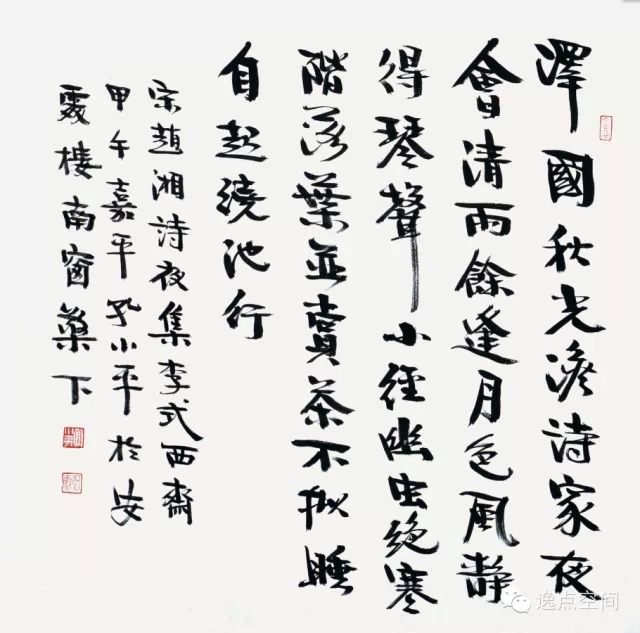 澤國秋光澹詩家夜
會清雨餘逢月色風靜
得琴聲小徑幽虫絕寒
階落葉並賣茶不拟睡
自起繞池行
宋趙湘詩夜集李式西齋
甲午嘉平孔小平於安
樓南窗藥下
逸点空间